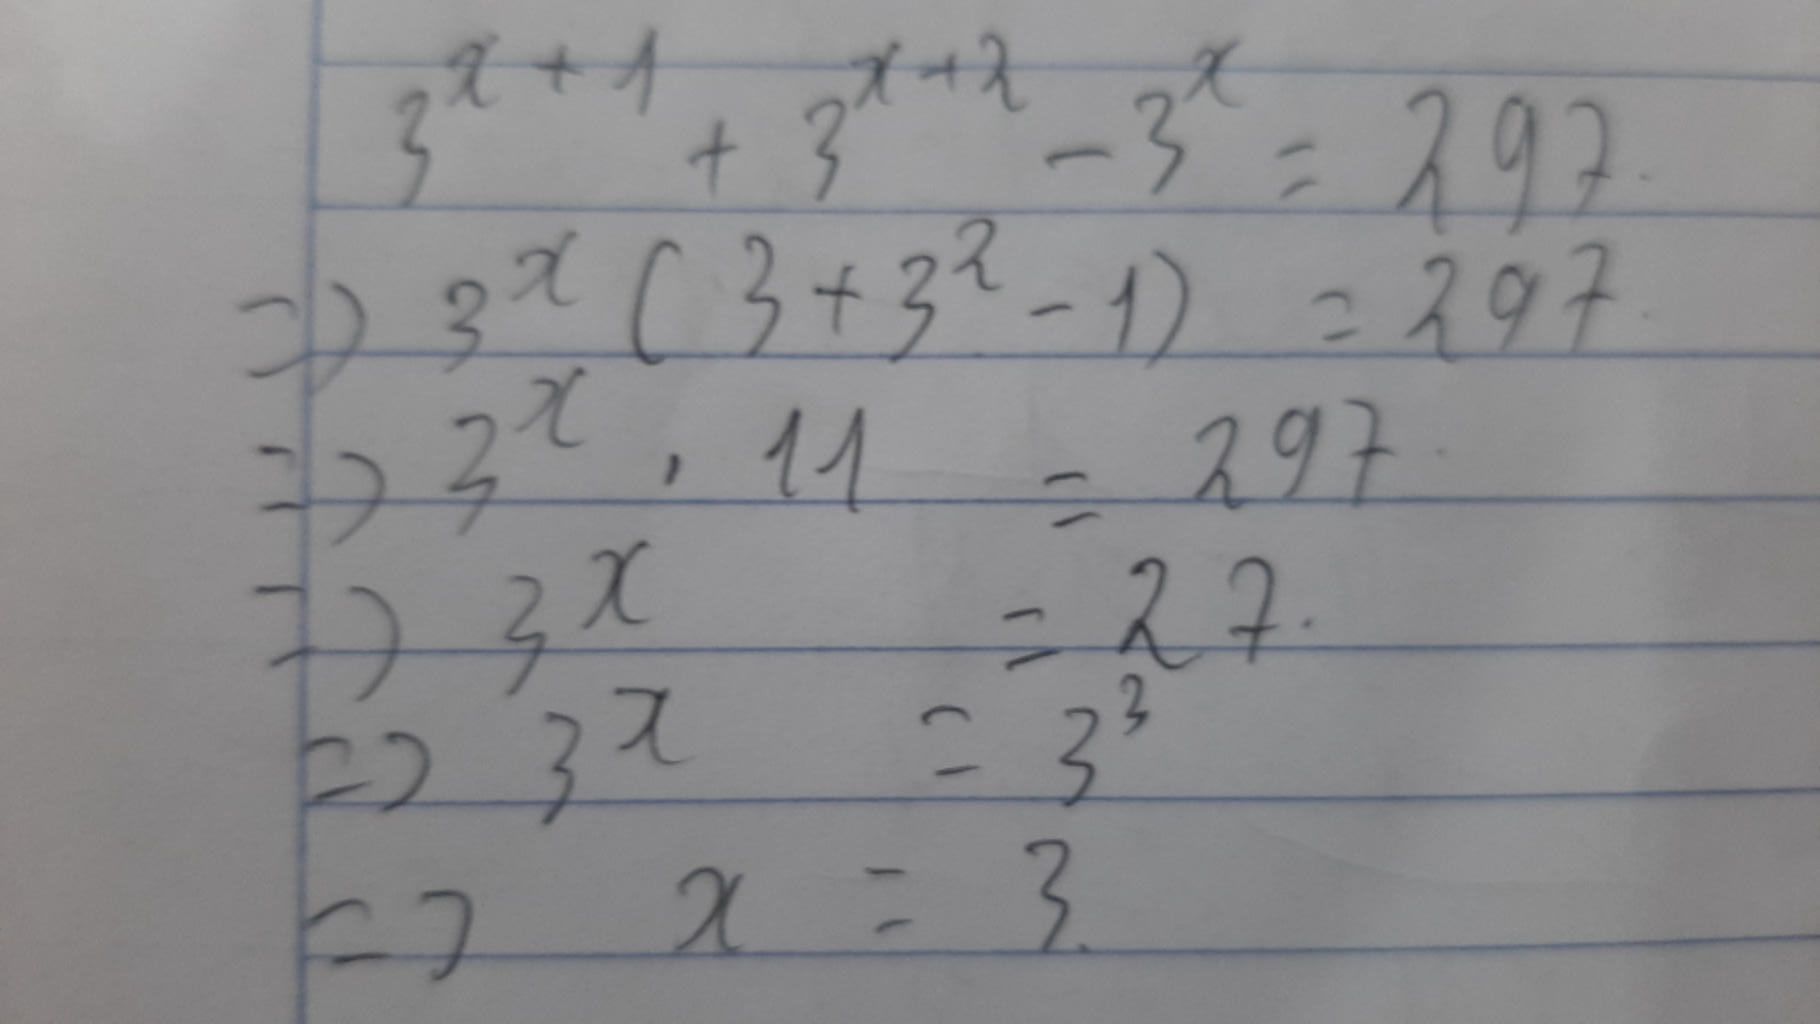 3^{x+1} + 3^{x+2} - 3^x = 297.
=> 3^x (3 + 3^2 - 1) = 297.
=> 3^x . 11 = 297.
=> 3^x = 27.
=> 3^x = 3^3
=> x = 3.